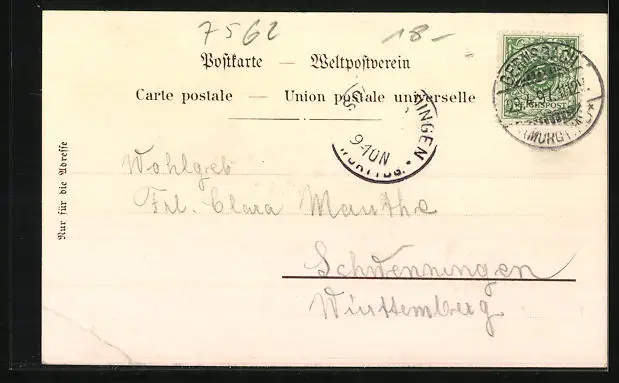 7562 18-
Postkarte — Weltpostverein
Carte postale — Union postale universelle
Nur für die Adresse
GERNSBACH
(MURGTHAL)
REICHSPOST
9-10N
Wohlgeb
Frl. Clara Mauthe
Schwenningen
Württemberg